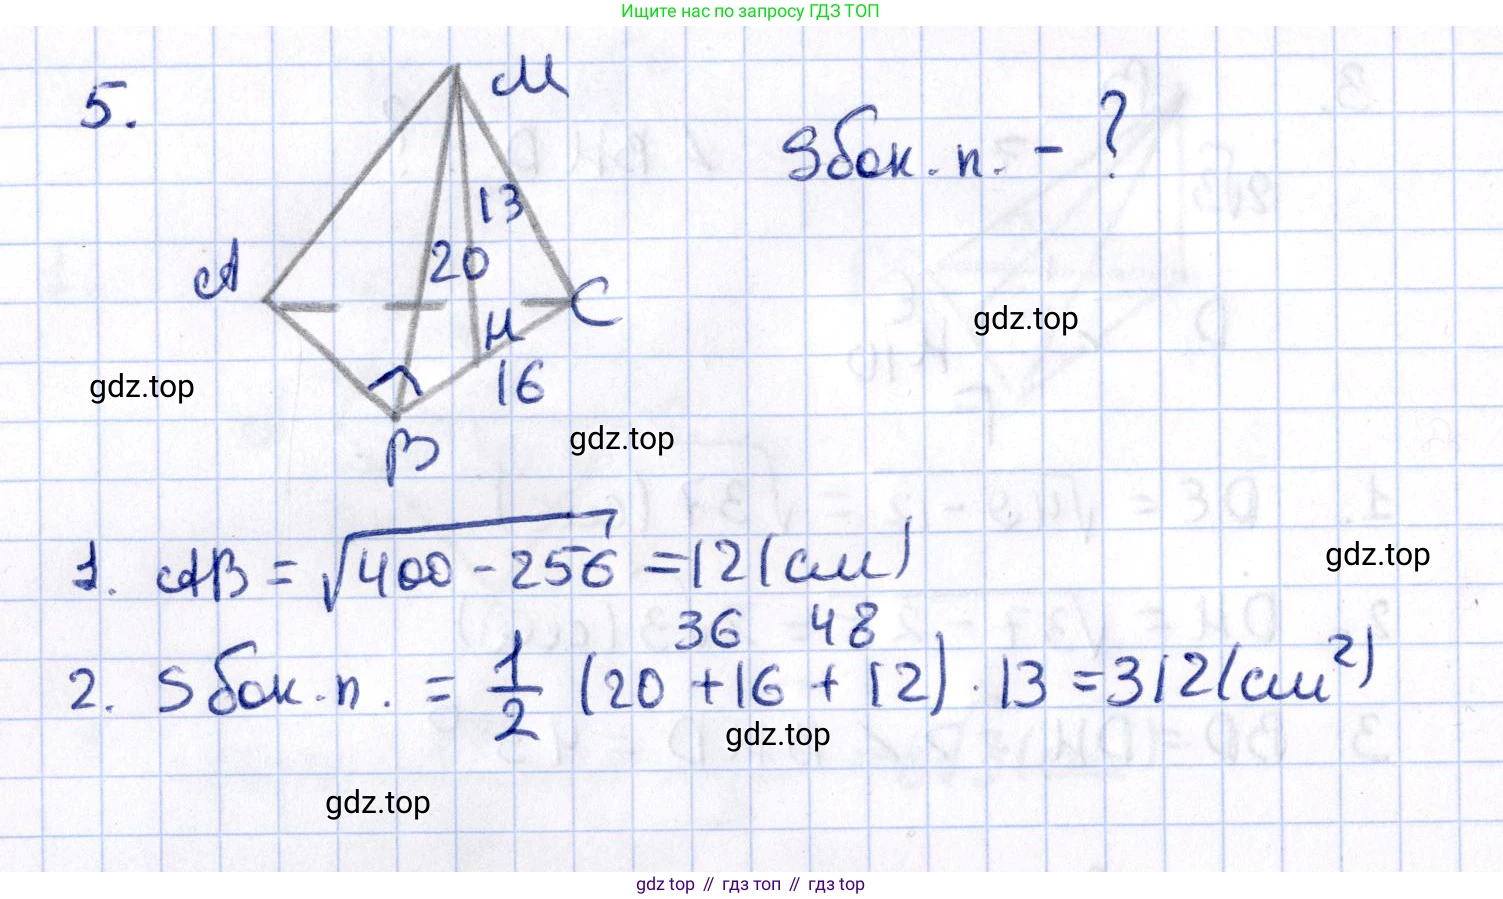 Ищите нас по запросу ГДЗ ТОП
5.
M
Sбок. п. - ?
13
A
20
H
C
gdz.top
16
gdz.top
gdz.top
B
1. AB = √400 - 256 = 12 (см)
gdz.top
36 48
2. Sбок. п. = 1/2 (20 + 16 + 12) · 13 = 312 (см²)
gdz.top
gdz.top
gdz top // гдз топ // гдз top